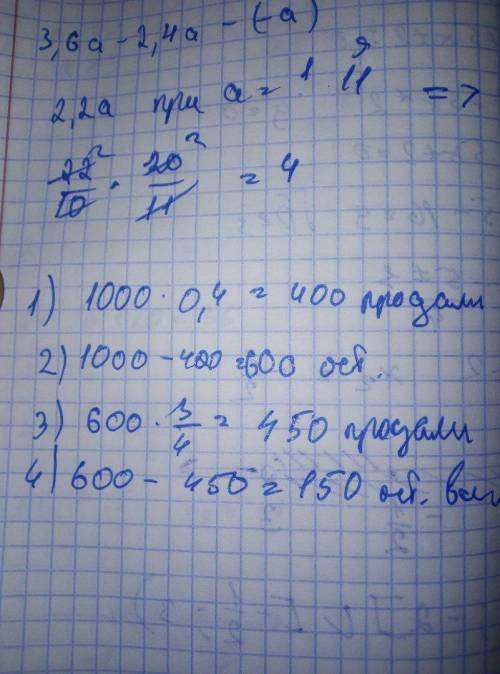 3,6a - 2,4a - (-a)
2,2a при a = 1 9/11 =>
22²/10 · 20²/11 = 4
1) 1000 · 0,4 = 400 продали
2) 1000 - 400 = 600 ост.
3) 600 · 3/4 = 450 продали
4) 600 - 450 = 150 ост.